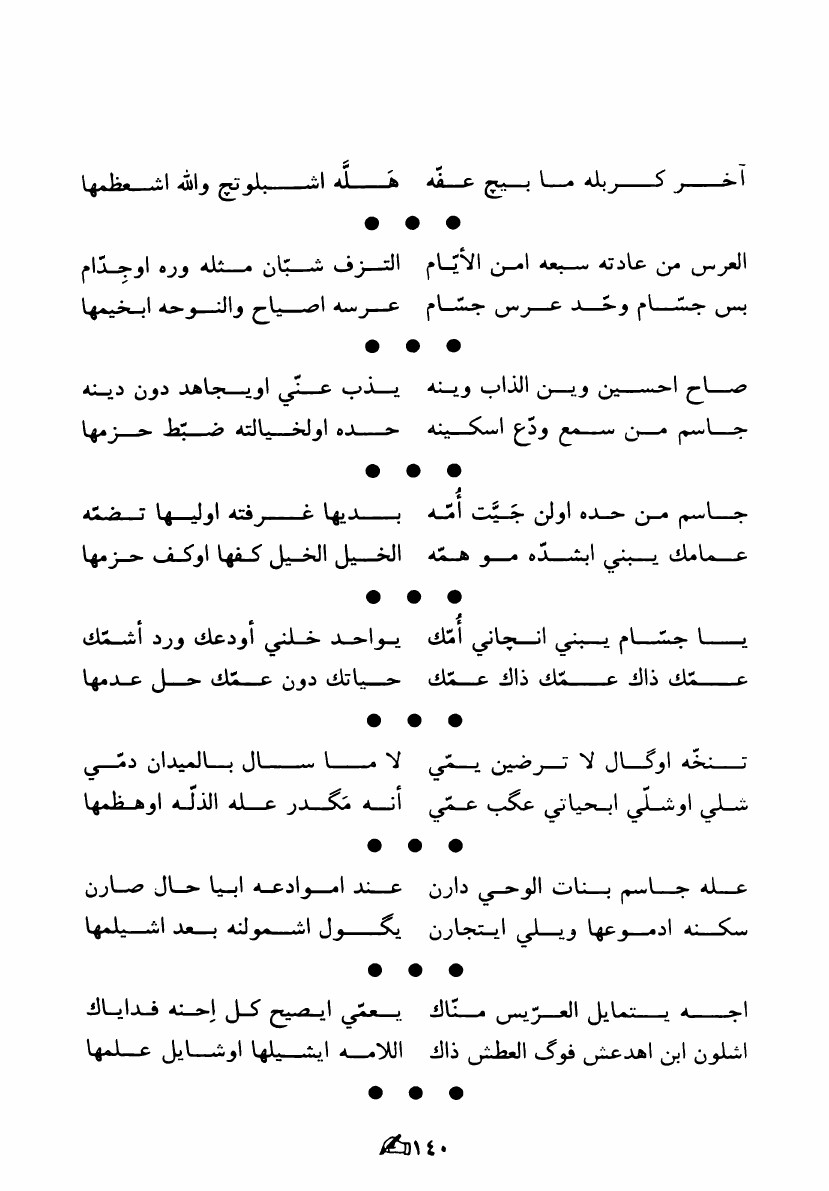 آخر كربله ما بيچ عفّه هَلَّه اشبلوتچ والله اشعظمها
● ● ●
العرس من عادته سبعه امن الأيّام التزف شبّان مثله وره اوجِدّام
بس جسّام وحّد عرس جسّام عرسه اصياح والنوحه ابخيمها
● ● ●
صاح احسين وين الذاب وينه يذب عنّي اويجاهد دون دينه
جاسم من سمع ودّع اسكينه حده اولخيالته ضبّط حزمها
● ● ●
جاسم من حده اولن جَيَّت أُمّه بديها غرفته اوليها تضمّه
عمامك يبني ابشدّه مو همّه الخيل الخيل كفها اوكف حزمها
● ● ●
يا جسّام يبني انچاني أُمّك يواحد خلني أودعك ورد أشمّك
عمّك ذاك عمّك ذاك عمّك حياتك دون عمّك حل عدمها
● ● ●
تنخّه اوگال لا ترضين يمّي لا ما سال بالميدان دمّي
شلي اوشلّي ابحياتي عگب عمّي أنه مَگدر عله الذلّه اوهظمها
● ● ●
عله جاسم بنات الوحي دارن عند اموادعه ابيا حال صارن
سكنه ادموعها ويلي ايتجارن يگول اشمولنه بعد اشيلمها
● ● ●
اجه يتمايل العرّيس منّاك يعمّي ايصيح كل إحنه فداياك
اشلون ابن اهدعش فوگ العطش ذاك اللامه ايشيلها اوشايل علمها
● ● ●
١٤٠